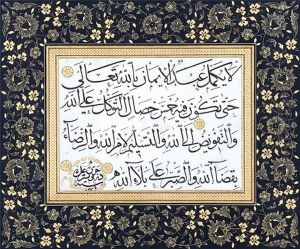 لا يكمل عبد الإيمان بالله تعالى
حتى تكون فيه خمس خصال التوكل على الله
والتفويض إلى الله والتسليم لأمر الله والرضاء
بقضاء الله والصبر على بلاء الله